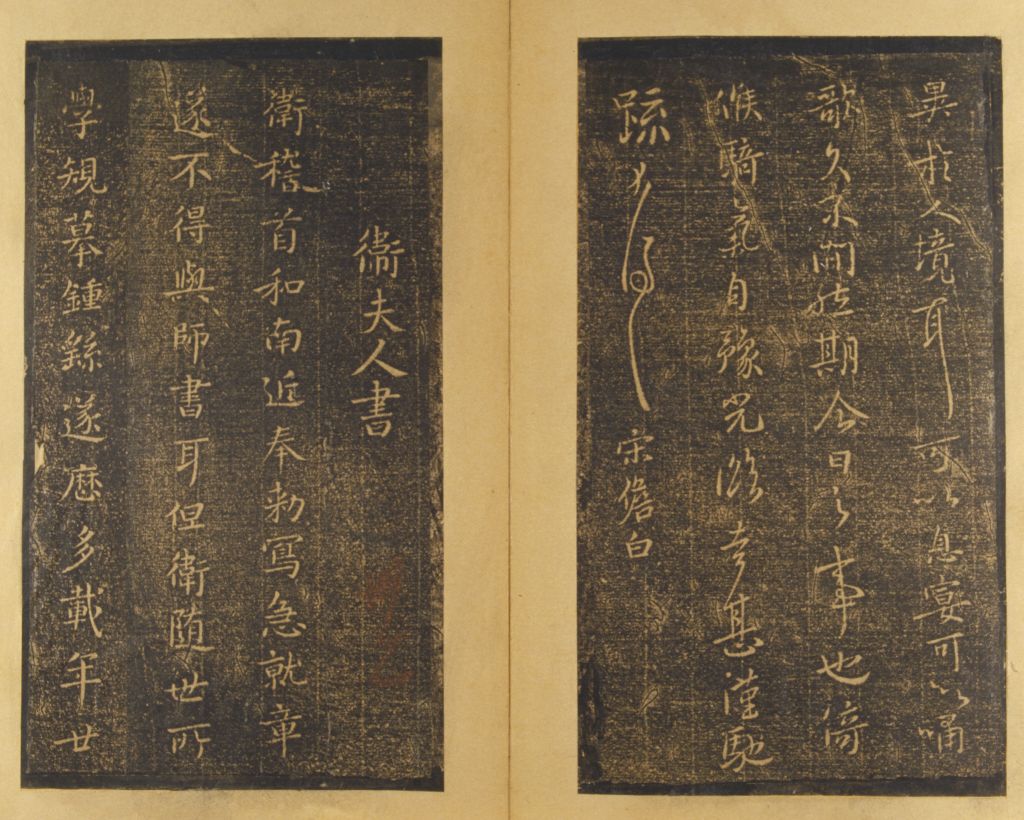 異於人境耳可以息宴可以嘯
歌久未閑然期今日之事也倚
候騎氣自豫光臨幸甚謹馳
疏不具宋儋白
衛夫人書
衛稽首和南近奉勅寫急就章
遂不得與師書耳但衛随世所
學規摹鍾繇遂歷多載年廿